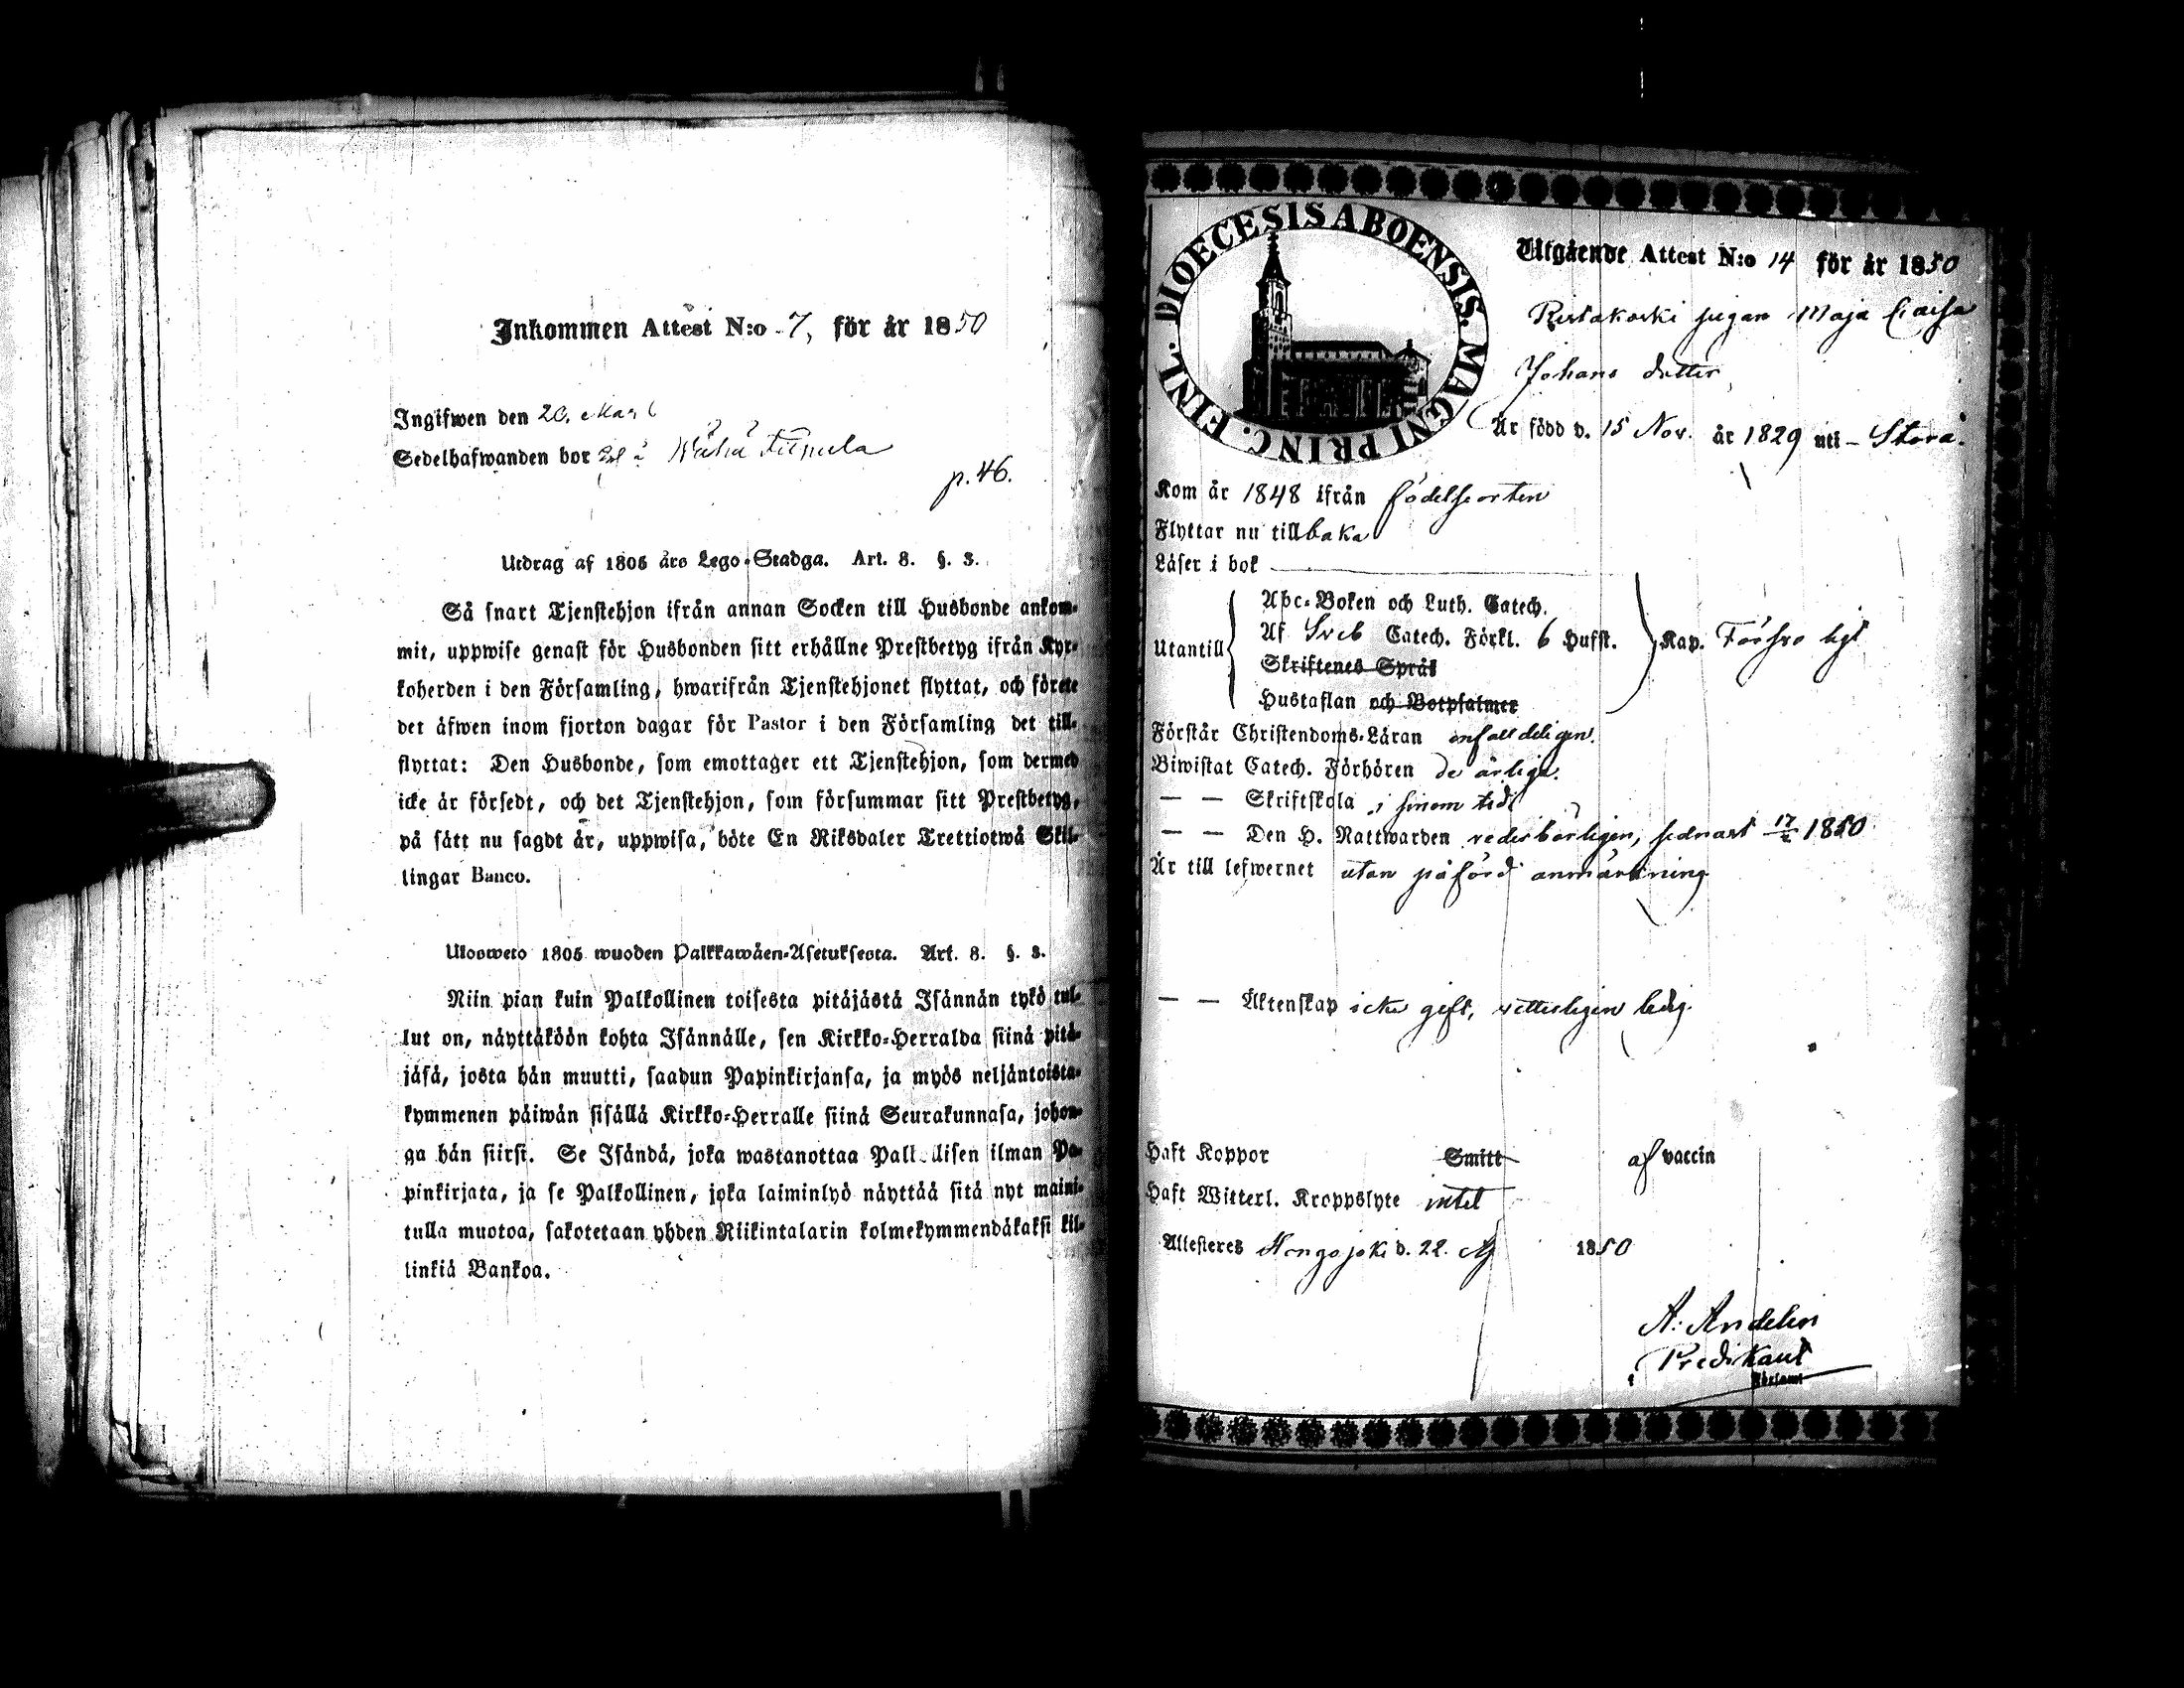 Inkommen Attest N:o 7, för år 1850
Ingifwen den 20. Mars
Sedelhafwanden bor
p. 46.
Utdrag af 1805 års Lego-Stadga. Art. 8. §. 3.
Så snart Tjenstehjon ifrån annan Socken till Husbonde ankom-
mit, uppwise genast för Husbonden sitt erhållne Prestbetyg ifrån Kyr-
koherden i den Församling, hwarifrån Tjenstehjonet flyttat, och förete
det äfwen inom fjorton dagar för Pastor i den Församling det till-
flyttat: Den Husbonde, som emottager ett Tjenstehjon, som dermed
icke är försedt, och det Tjenstehjon, som försummar sitt Prestbetyg,
på sätt nu sagdt är, uppwisa, böte En Riksdaler Trettiotwå Skil-
lingar Banco.
Ulosweto 1805 wuoden Palkkawäen-Asetuksesta. Art. 8. §. 3.
Niin pian kuin Palkollinen toisesta pitäjästä Isännän tykö tul-
lut on, näyttäköön kohta Isännälle, sen Kirkko-Herralda siinä pitä-
jäsä, josta hän muutti, saadun Papinkirjansa, ja myös neljäntoista-
kymmenen päiwän sisällä Kirkko-Herralle siinä Seurakunnasa, johon-
ga hän siirsi. Se Isändä, joka wastanottaa Palkollisen ilman Pa-
pinkirjata, ja se Palkollinen, joka laiminlyö näyttää sitä nyt maini-
tulla muotoa, sakotetaan yhden Riikintalarin kolmekymmendäkaksi kil-
linkiä Bankoa.
DIOECESIS ABOENSIS. MAGNI PRINC. FINL.
Utgående Attest N:o 14 för år 1850
Ristakoski pigan Maja Caisa
Johans dotter,
Är född d. 15 Nov. år 1829 uti Storå.
Kom år 1848 ifrån födelseorten
Flyttar nu tillbaka
Läser i bok
Utantill
Abc-Boken och Luth. Catech.
Af Sveb Catech. Förkl. 6 Hufst.
Skriftenes Språk
Hustaflan och Botpsalmer
Kap. Försvarligt
Förstår Christendoms-Läran enfalldeligen.
Biwistat Catech. Förhören de årliga.
— — Skriftskola i sinom tid
— — Den H. Nattwarden vederbörligen, sednast 17/2 1850
Är till lefwernet utan påförd anmärkning
— — Äktenskap icke gift, witterligen ledig.
Haft Koppor Smitt af vaccin
Haft Witterl. Kroppslyte intet
Attesteres Hongojoki d. 22. 1850
A: Andelin
Predikant